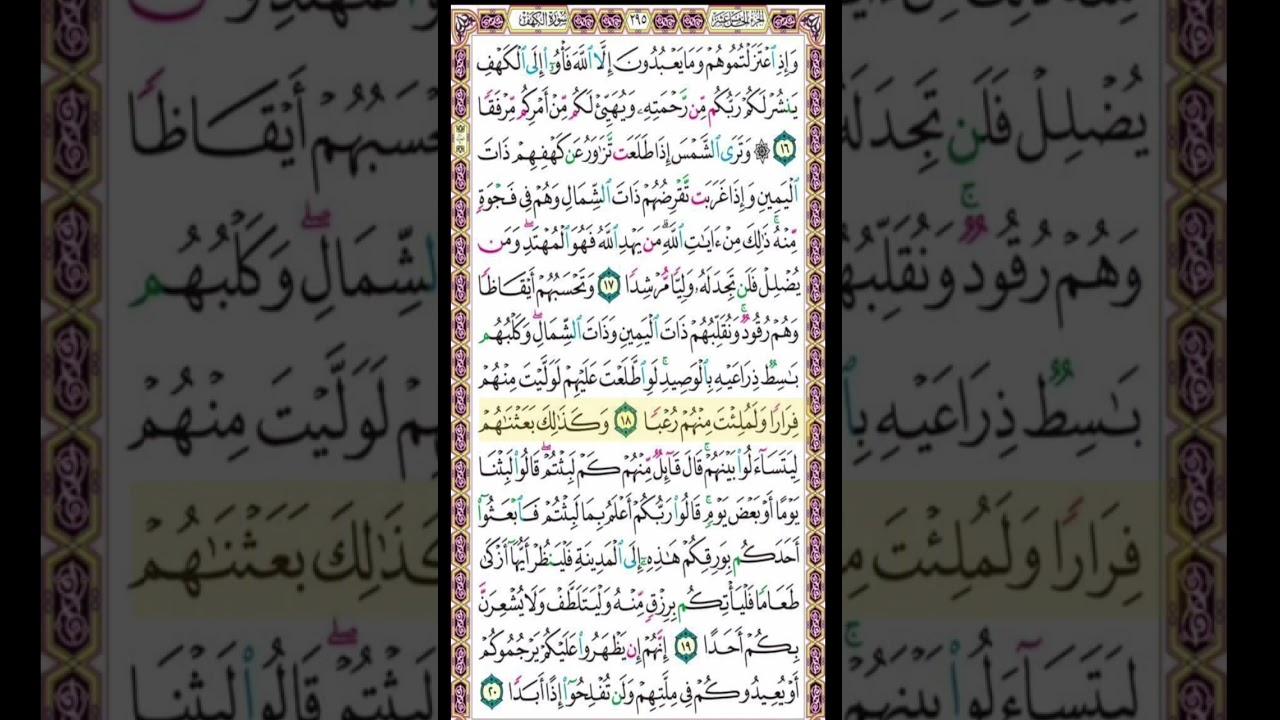 سُورَةُ الكَهْفِ
٢٩٥
الجزء الخامس عشر
وَإِذِ ٱعْتَزَلْتُمُوهُمْ وَمَا يَعْبُدُونَ إِلَّا ٱللَّهَ فَأْوُۥٓا۟ إِلَى ٱلْكَهْفِ
يَنشُرْ لَكُمْ رَبُّكُم مِّن رَّحْمَتِهِۦ وَيُهَيِّئْ لَكُم مِّنْ أَمْرِكُم مِّرْفَقًا
١٦ ۞ وَتَرَى ٱلشَّمْسَ إِذَا طَلَعَت تَّزَٰوَرُ عَن كَهْفِهِمْ ذَاتَ
ٱلْيَمِينِ وَإِذَا غَرَبَت تَّقْرِضُهُمْ ذَاتَ ٱلشِّمَالِ وَهُمْ فِى فَجْوَةٍ
مِّنْهُ ۚ ذَٰلِكَ مِنْ ءَايَٰتِ ٱللَّهِ ۗ مَن يَهْدِ ٱللَّهُ فَهُوَ ٱلْمُهْتَدِ ۖ وَمَن
يُضْلِلْ فَلَن تَجِدَ لَهُۥ وَلِيًّا مُّرْشِدًا ١٧ وَتَحْسَبُهُمْ أَيْقَاظًا
وَهُمْ رُقُودٌ ۚ وَنُقَلِّبُهُمْ ذَاتَ ٱلْيَمِينِ وَذَاتَ ٱلشِّمَالِ ۖ وَكَلْبُهُم
بَٰسِطٌ ذِرَاعَيْهِ بِٱلْوَصِيدِ ۚ لَوِ ٱطَّلَعْتَ عَلَيْهِمْ لَوَلَّيْتَ مِنْهُمْ
فِرَارًا وَلَمُلِئْتَ مِنْهُمْ رُعْبًا ١٨ وَكَذَٰلِكَ بَعَثْنَٰهُمْ
لِيَتَسَآءَلُوا۟ بَيْنَهُمْ ۚ قَالَ قَآئِلٌ مِّنْهُمْ كَمْ لَبِثْتُمْ ۖ قَالُوا۟ لَبِثْنَا
يَوْمًا أَوْ بَعْضَ يَوْمٍ ۚ قَالُوا۟ رَبُّكُمْ أَعْلَمُ بِمَا لَبِثْتُمْ فَٱبْعَثُوٓا۟
أَحَدَكُم بِوَرِقِكُمْ هَٰذِهِۦٓ إِلَى ٱلْمَدِينَةِ فَلْيَنظُرْ أَيُّهَآ أَزْكَىٰ
طَعَامًا فَلْيَأْتِكُم بِرِزْقٍ مِّنْهُ وَلْيَتَلَطَّفْ وَلَا يُشْعِرَنَّ
بِكُمْ أَحَدًا ١٩ إِنَّهُمْ إِن يَظْهَرُوا۟ عَلَيْكُمْ يَرْجُمُوكُمْ
أَوْ يُعِيدُوكُمْ فِى مِلَّتِهِمْ وَلَن تُفْلِحُوٓا۟ إِذًا أَبَدًا ٢٠